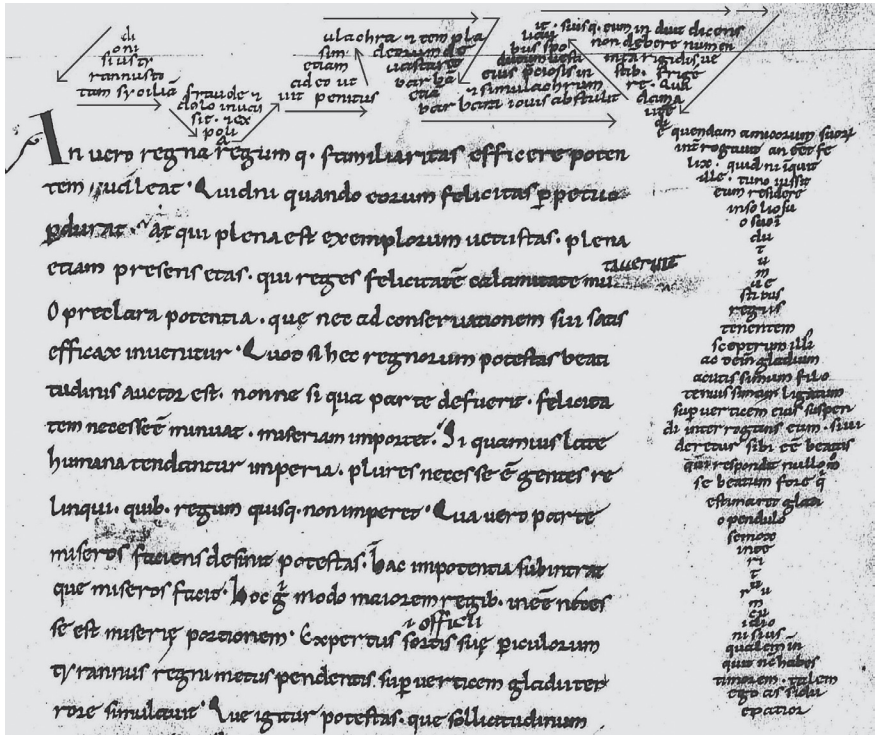 di
oni
si ustr
rannusto
tam sycilia
fraude &
dolo inuas
sit. & ex
poli
a
ulachra & templa
sim
etiam
adeo ut
uit penitus
deorum de
uastare
bar ba
etia
bar bam iouis abstulit
it. suisq. cum in
uau
bus spo
ducum uesti
eius p̄ciosis in
& simulachrum
diut dicens
non debere numen
intā rigidis ue
stib. frige
re. Qua
dama
uice
di
ē quendam amicorum suorum
interrogauit an ēet fe
lix. quid ni īquit
ille. tunc iussit
eum residere
in solio su
o suoꝛ
du
t
u
m
ue
stibus
regiis
tenentem
sceptrum illi
ac dein gladium
acutissimum filo
tenuissimum ligatum
sup uerticem eius suspen
di interrogans eum. si ui
deretur sibi ēe beatus
qui respondit nullo mō
se beatum fore q̄
estimaret gladi
o pendulo
semox
inte
ri
t
u
r u
m
cu
i dio
nisius
qualem in
quit ne habes
timorem. talem
ego assidu
e patior
In uero regna regum q. familiaritas efficere poten
tem ualeat. Quidni quando eorum felicitas ꝑpetuo
ꝑdurat. At qui plena est exemplorum uetustas. plena
etiam presens etas. qui reges felicitatē calamitate mu
tauerint
O preclara potentia. que nec ad conseruationem sui satis
efficax inuenitur. Quot si hec regnorum potestas beati
tudinis auctor est. nonne si qua parte defuerit. felicita
tem necesse ē minuat. miseriam importet. Si quamuis late
humana tendantur imperia. plures necesse ē gentes re
linqui. quib. regum quisq. non imperet. Qua uero parte
miseros faciens desinit potestas. hac impotentia subintrat
que miseros facit. hoc g̊ modo maiorem regib. inēe neces
se est miserię portionem. Expertus sortis suę ꝑiculorum
i officii
tyrannus regni metus pendentis suꝑ uerticem gladii ter
rore simulauit. Que igitur potestas. que sollicitudinum